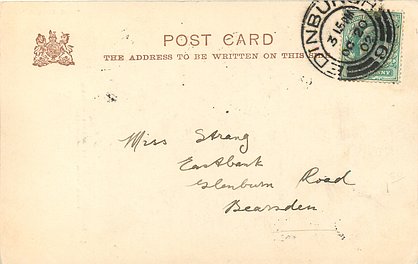 POST CARD
THE ADDRESS TO BE WRITTEN ON THIS
EDINBURGH
3 15PM
OC 20
02
Miss Strang
Eastbank
Glenburn Road
Bearsden